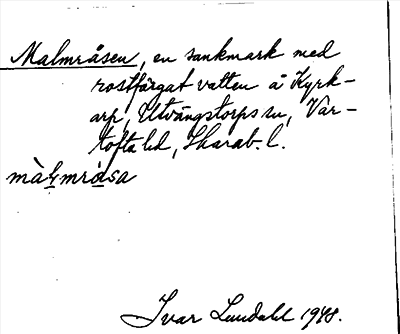 Malmråsen, en sankmark med
rostfärgat vatten å Kyrk-
arp, Utvängstorps sn, Var-
tofta hd, Skarab. l.
màlmråsa
Ivar Lundahl 1948.